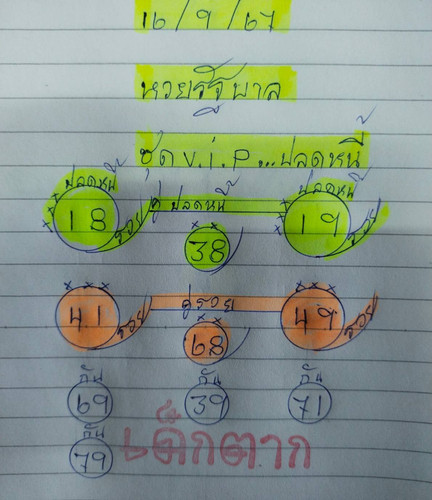 16/9/67
หวยรัฐบาล
ชุด v.i.p...ปลดหนี้
ปลดหนี้ คู่ปลดหนี้ ปลดหนี้
18 รวย 38 19 รวย
คู่รวย
41 รวย 68 49 รวย
69 39 71
79 เด็กตาก